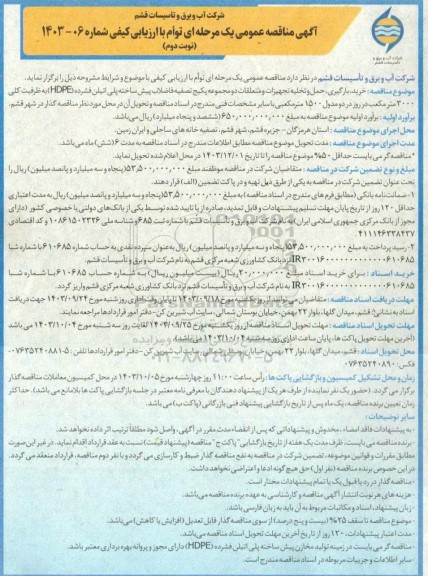 شرکت آب و برق و تاسیسات قشم
آگهی مناقصه عمومی یک مرحله ای توأم با ارزیابی کیفی شماره ۰۶-۱۴۰۳
(نوبت دوم)
شرکت آب و برق و تأسیسات قشم در نظر دارد مناقصه عمومی یک مرحله ای توأم با ارزیابی کیفی با موضوع و شرایط مشروحه ذیل را برگزار نماید.
موضوع مناقصه: خرید، بارگیری، حمل و تخلیه تجهیزات و متعلقات دو مجموعه پکیج تصفیه فاضلاب پیش ساخته پلی اتیلن فشرده (HDPE) به ظرفیت کلی
۳۰۰۰ متر مکعب در روز در دو مدول ۱۵۰۰ مترمکعبی با سایر مشخصات فنی مندرج در اسناد مناقصه و تحویل آن در محل مورد نظر مناقصه گذار در شهر قشم.
برآورد اولیه: برآورد اولیه موضوع مناقصه به مبلغ ۶۵۰٬۰۰۰٬۰۰۰٬۰۰۰ (ششصد و پنجاه میلیارد) ریال می‌باشد.
محل اجرای موضوع مناقصه: استان هرمزگان - جزیره قشم، شهر قشم، تصفیه خانه های ساحلی و ایران زمین.
مدت اجرای موضوع مناقصه: مدت تحویل موضوع مناقصه مطابق اطلاعات مندرج در اسناد مناقصه به مدت ۶ (شش) ماه می‌باشد.
*مناقصه گر می بایست حداقل ۵۰% موضوع مناقصه را تا تاریخ ۱۴۰۳/۱۲/۰۱ در محل اعلام شده تحویل نماید.
مبلغ و نوع تضمین شرکت در مناقصه: متقاضیان شرکت در مناقصه موظفند مبلغ ۵۳٬۵۰۰٬۰۰۰٬۰۰۰ (پنجاه و سه میلیارد و پانصد میلیون) ریال را
تحت عنوان تضمین شرکت در مناقصه به یکی از طرق ذیل تهیه و در پاکت تضمین (الف) قرار دهند.
۱- ضمانت نامه بانکی (مطابق فرم های مندرج در اسناد مناقصه) به مبلغ ۵۳٬۵۰۰٬۰۰۰٬۰۰۰ (پنجاه و سه میلیارد و پانصد میلیون) ریال به مدت اعتباری
حداقل ۱۲۰ روز از تاریخ پایان مهلت تسلیم پیشنهادات و قابل تمدید، صادره از یا تایید شده توسط یکی از بانک های دولتی یا خصوصی کشور (دارای
مجوز از بانک مرکزی جمهوری اسلامی ایران) به نفع شرکت آب و برق و تأسیسات قشم با شماره ثبت ۶۸۵ و شناسه ملی ۱۰۸۶۱۵۰۲۳۳۶ و کد اقتصادی
۴۱۱۱۴۶۳۳۸۴۳۷
۲- رسید پرداخت به مبلغ ۵۳٬۵۰۰٬۰۰۰٬۰۰۰ (پنجاه و سه میلیارد و پانصد میلیون) ریال به عنوان سپرده نقدی به حساب شماره ۶۱۰۶۸۵ با شماره شبا
نزد بانک کشاورزی شعبه مرکزی قشم به نام شرکت آب و برق و تأسیسات قشم.
خرید اسناد: برای خرید اسناد مبلغ ۲۰٬۰۰۰٬۰۰۰ ریال (بیست میلیون ریال) به شماره حساب ۶۱۰۶۸۵ با شماره شبا
به نام شرکت آب و برق و تأسیسات قشم نزد بانک کشاورزی شعبه مرکزی قشم واریز گردد.
مهلت دریافت اسناد مناقصه: متقاضیان می‌توانند از روز یکشنبه مورخ ۱۴۰۳/۰۹/۱۸ تا پایان وقت اداری روز شنبه مورخ ۱۴۰۳/۰۹/۲۴ جهت دریافت
اسناد به نشانی: قشم، میدان گلها، بلوار ۲۲ بهمن، خیابان بوستان شمالی، سایت آب شیرین کن - دفتر امور قراردادها مراجعه نمایند.
مهلت تحویل اسناد مناقصه: مهلت تحویل اسناد مناقصه از روز یکشنبه مورخ ۱۴۰۳/۰۹/۲۵ لغایت روز سه شنبه مورخ ۱۴۰۳/۱۰/۰۴ می باشد
(آخرین مهلت تحویل پاکت ها، پایان ساعت اداری روز سه شنبه ۱۴۰۳/۱۰/۰۴ می‌باشد)
محل تحویل اسناد: قشم، میدان گلها، بلوار ۲۲ بهمن، خیابان بوستان شمالی، سایت آب شیرین کن - دفتر امور قراردادها تلفن: ۵-۰۷۶۳۵۲۴۰۸۸۱
فکس: ۰۷۶۳۵۲۴۰۸۹۰
زمان و محل تشکیل کمیسیون و بازگشایی پاکت ها: رأس ساعت ۱۱:۰۰ روز چهارشنبه مورخ ۱۴۰۳/۱۰/۰۵ در محل کمیسیون معاملات مناقصه گذار
برگزار می گردد. (حضور یک نفر نماینده از طرف هر یک از پیشنهاد دهندگان با معرفی نامه معتبر در جلسه بازگشایی پاکت ها بلامانع می باشد). حداکثر
زمان تعیین برنده مناقصه، یک ماه پس از تاریخ بازگشایی پیشنهاد فنی بازرگانی (پاکت ب) می باشد.
سایر توضیحات:
- به پیشنهادات فاقد امضاء، مخدوش و پیشنهاداتی که پس از انقضاء مدت مقرر در آگهی، واصل شود مطلقاً ترتیب اثر داده نخواهد شد.
- برنده مناقصه می بایست، ظرف مدت یک هفته از تاریخ بازگشایی "پاکت ج" مناقصه (پیشنهاد قیمت) نسبت به عقد قرارداد اقدام نماید. در غیر این صورت
مطابق مقررات و قوانین موضوعه، تضمین شرکت در مناقصه به نفع مناقصه گذار ضبط و کارسازی می گردد و با نفر دوم مناقصه، قرارداد منعقد می گردد.
در این خصوص برنده مناقصه (نفر اول) حق هیچ گونه ادعا و اعتراضی نخواهد داشت.
- مناقصه گذار در رد یا قبول یک یا تمام پیشنهادات مختار است.
- هزینه های هر نوبت انتشار آگهی مناقصه و کارشناسی به عهده برنده مناقصه می باشد.
- زبان پیشنهاد، اسناد و مکاتبات مربوط به آن باید به زبان فارسی باشد.
- موضوع مناقصه تا سقف ۲۵% (بیست و پنج درصد) از سوی مناقصه گذار قابل تعدیل (افزایش یا کاهش) می‌باشد.
- مدت اعتبار پیشنهادات، ۱۲۰ روز از تاریخ آخرین مهلت تحویل اسناد مناقصه می باشد.
- مناقصه گر می بایست در زمینه تولید مخازن پیش ساخته پلی اتیلن فشرده (HDPE) دارای مجوز و پروانه بهره برداری معتبر باشد.
- سایر اطلاعات و جزییات مربوطه در اسناد مناقصه مندرج است.